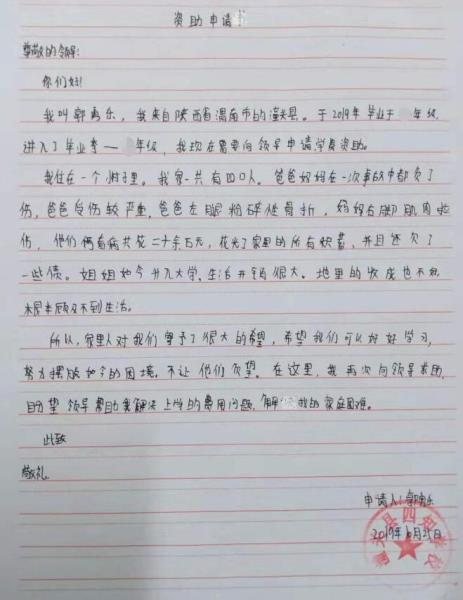 资助申请
尊敬的领导:
你们好!
我叫郭勇乐,我来自陕西省渭南市的潼关县。于2019年毕业于 年级,
进入了毕业季一 年级,我现在需要向领导申请学费资助。
我住在一个村子里。我家一共有四口人。爸爸妈妈在一次事故中都负了
伤,爸爸受伤较严重,爸爸左腿粉碎性骨折,妈妈右脚肌肉
伤,他们俩看病共花二十余万元,花光了家里的所有积蓄,并且还欠了
一些债。姐姐如今升入大学,生活开销很大。地里的收成也不
根本顾及不到生活。
所以,家里人对我们寄予了很大的希望,希望我们可以好好学习,
努力摆脱如今的困境,不让他们失望。在这里,我再次向领导求助,
望领导帮助我解决上学的费用问题,解 我的家庭困难。
此致
敬礼
申请人:郭 乐
2019年10月25日
潼关县四知学校